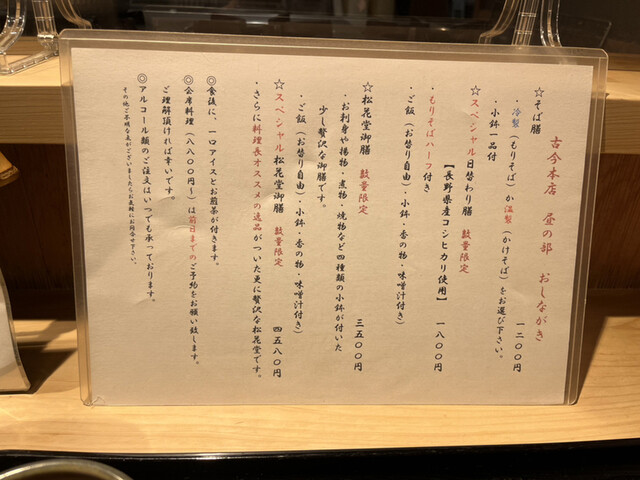 古今本店 昼の部 おしながき
☆そば膳 一二〇〇円
・冷製(もりそば)か温製(かけそば)をお選び下さい。
・小鉢一品付
☆スペシャル日替わり膳 数量限定 一八〇〇円
【長野県産コシヒカリ使用】
・もりそばハーフ付き
・ご飯(お替り自由)・小鉢・香の物・味噌汁付き)
☆松花堂御膳 数量限定 三五〇〇円
・お刺身や揚物・煮物・焼物など四種類の小鉢が付いた
少し贅沢な御膳です。
・ご飯(お替り自由)・小鉢・香の物・味噌汁付き)
☆スペシャル松花堂御膳 数量限定 四五八〇円
・さらに料理長オススメの逸品がついた更に贅沢な松花堂です。
◎食後に、一口アイスとお煎茶が付きます。
◎会席料理(八八〇〇円~)は前日までのご予約をお願い致します。
ご理解頂ければ幸いです。
◎アルコール類のご注文はいつでも承っております。
その他ご不明な点がございましたらお気軽にお問合せ下さい。